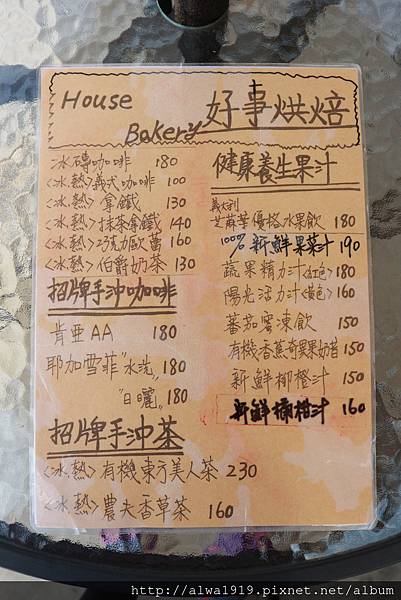 House
Bakery 好事烘焙
冰磚咖啡 180
<冰.熱>義式咖啡 100
<冰.熱> 拿鐵 130
<冰.熱>抹茶拿鐵 140
<冰.熱>巧克力歐蕾 160
<冰.熱>伯爵奶茶 130
招牌手沖咖啡
肯亞AA 180
耶加雪菲"水洗" 180
"日曬" 180
招牌手沖茶
<冰.熱>有機東方美人茶 230
<冰.熱>農夫香草茶 160
健康養生果汁
義大利
芝麻葉優格水果飲 180
100%新鮮果菜汁 190
蔬果精力汁<紅色>180
陽光活力汁<黃色>160
蕃茄雪凍飲 150
有機香蕉奇異果奶昔 150
新鮮柳橙汁 150
新鮮橘柑汁 160
http://alwa1919.pixnet.net/album